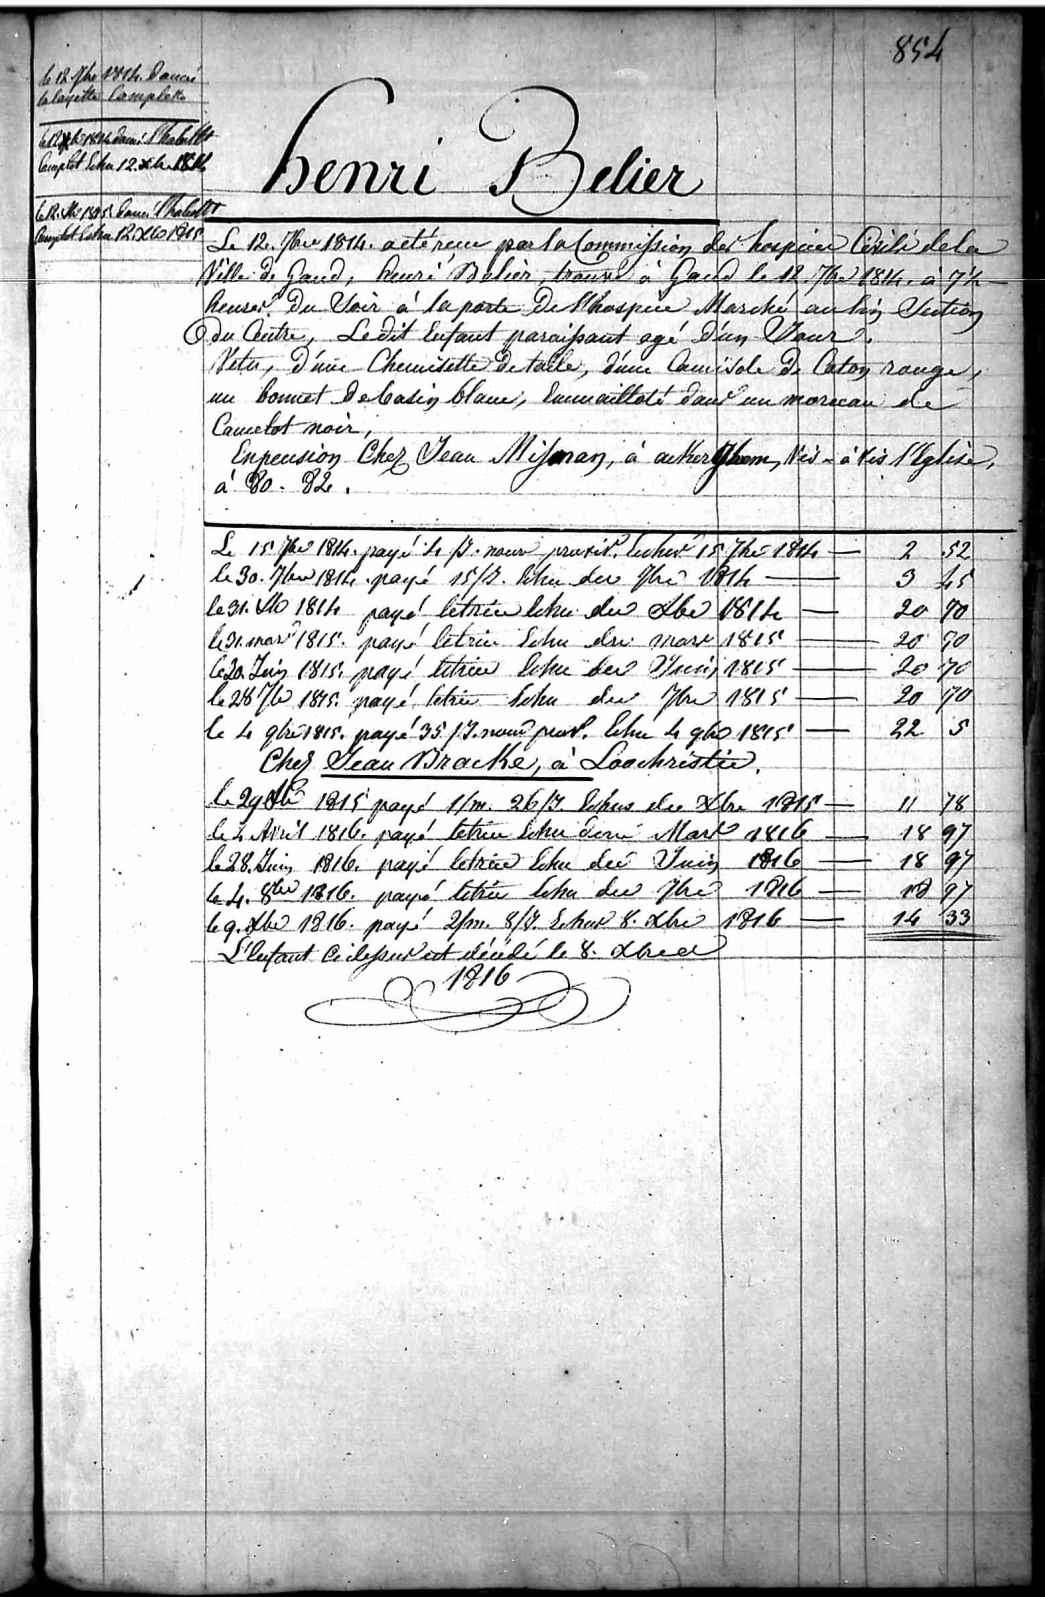 854
le 12 7bre 1814. donné
la layette Complette
le 12 Xbre 1814 donné l'habillt
Complet Echu 12. Xbre 1814
le 12. Xbre 1815 donné l'habillt
Complet Echu 12. Xbre 1815
henri Belier
Le 12. 7bre 1814. a été reçu par la Commission des hospices Civils de la
Ville de Gand, henri Belier, trouvé à Gand le 12. 7bre 1814. à 7 1/2
heures du Soir à la porte De l'hospice Marché au lin Section
du Centre, Ledit Enfant paraissant agé d'un Jour.
Vetu, d'une Chemisette de toile, d'une Camisole de Coton rouge,
un bonnet de basin blanc, Emmailloté dans un morceau de
Camelot noir,
Enpension Chez Jean Misman, à akkerghem, Vis-à Vis l'Eglise,
à 80-82.
Le 15 7bre 1814. payé 4/J. nour provis. Echus 15 7bre 1814 — 2 52
le 30. 7bre 1814. payé 15/J. Echu der 7bre 1814 — 3 45
le 31. Xbe 1814 payé letrim Echu der Xbe 1814 — 20 70
le 31. mars 1815. payé letrim Echu der mars 1815 — 20 70
le 20. Juin 1815. payé letrim Echu der Juin 1815 — 20 70
le 28 7be 1815. payé letrim Echu der 7bre 1815 — 20 70
le 4 9bre 1815. payé 35/J. nour prov. Echu 4 9bre 1815 — 22 5
Chez Jean Bracke, à Loochristie.
le 29 Xbe 1815 payé 1/m. 26/J Echus der Xbre 1815 — 11 78
le 2 Avril 1816. payé letrim Echu dernr Mars 1816 — 18 97
le 28. Juin 1816. payé letrim Echu der Juin 1816 — 18 97
le 4. 8bre 1816. payé letrim Echu der 7bre 1816 — 18 97
le 9. Xbre 1816. payé 2/m. 8/J. Echus 8. Xbre 1816 — 14 33
L'Enfant Cidessus est décédé le 8. Xbre
1816